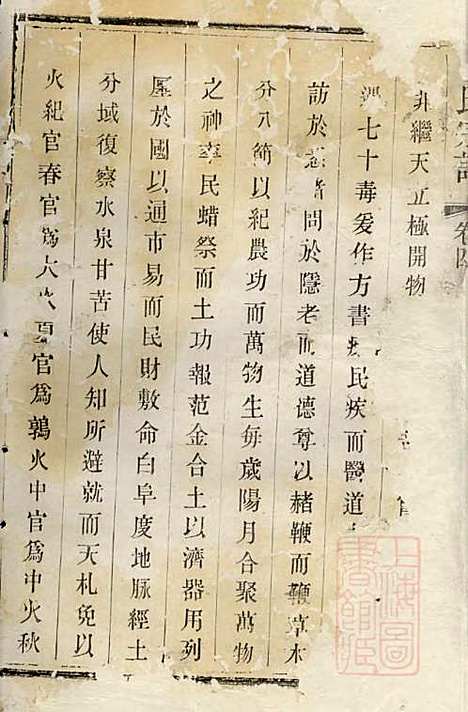 氏宗譜 卷四
非繼天立極開物
遇七十毒爰作方書療民疾而醫道
訪於 問於隱老而道德尊以赭鞭而鞭草木
分八節以紀農功而萬物生每歲陽月合聚萬物
之神率民蜡祭而土功報范金合土以濟器用列
廛於國以通市易而民財敷命白阜度地脉經土
分域復察水泉甘苦使人知所避就而天札免以
火紀官春官爲大火夏官爲鶉火中官爲中火秋
上海圖書館藏